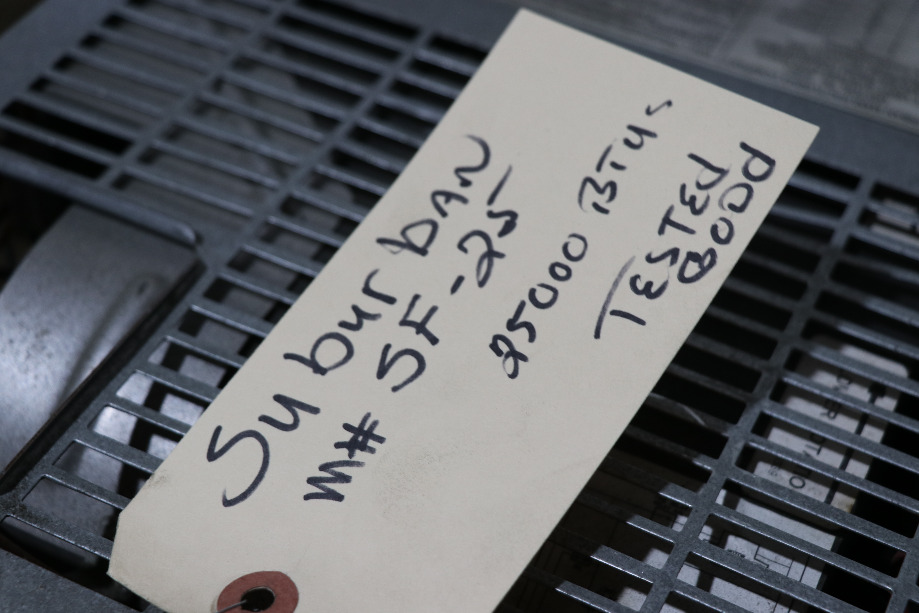 Suburban
M# SF-25
25000 BTUs
TESTED
GOOD